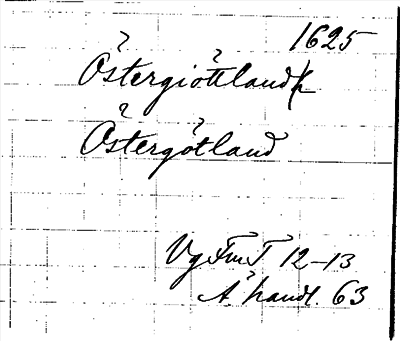 1625
Östergiöttlandh
Östergötland
Vg Fm T 12-13
A handl. 63